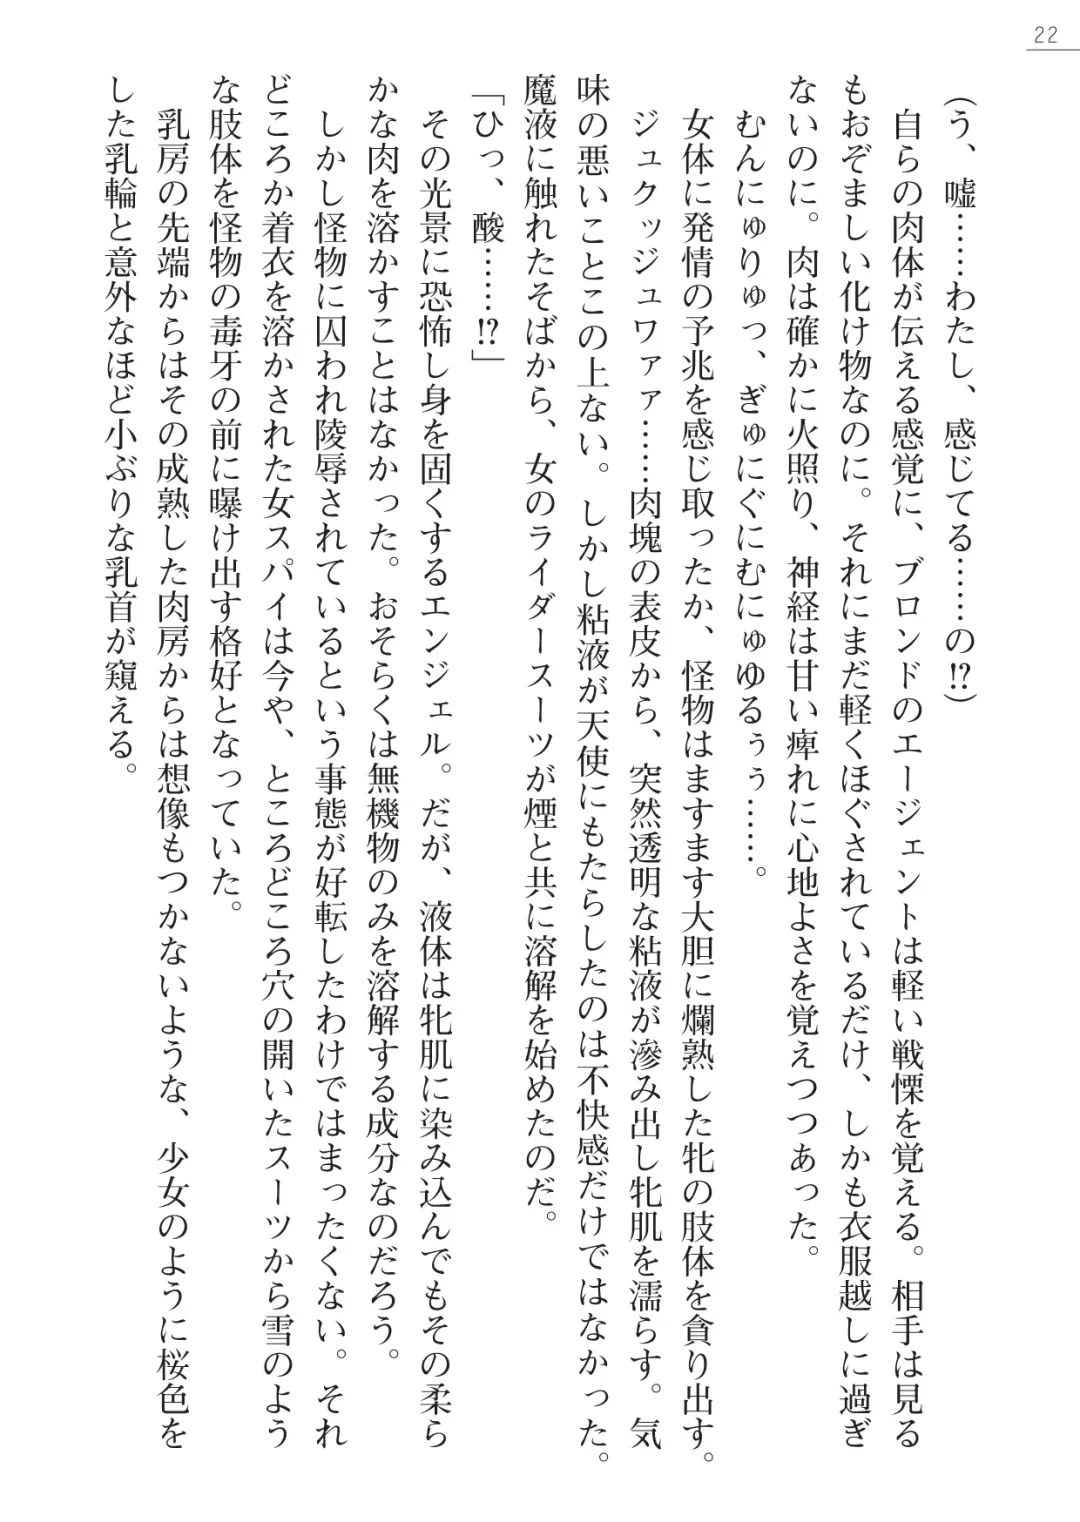 22
(う、嘘……わたし、感じてる……の!?)
　自らの肉体が伝える感覚に、ブロンドのエージェントは軽い戦慄を覚える。相手は見る
もおぞましい化け物なのに。それにまだ軽くほぐされているだけ、しかも衣服越しに過ぎ
ないのに。肉は確かに火照り、神経は甘い痺れに心地よさを覚えつつあった。
　むんにゅりゅっ、ぎゅにぐにむにゅゆるぅぅ……。
　女体に発情の予兆を感じ取ったか、怪物はますます大胆に爛熟した牝の肢体を貪り出す。
　ジュクッジュワァァ……肉塊の表皮から、突然透明な粘液が滲み出し牝肌を濡らす。気
味の悪いことこの上ない。しかし粘液が天使にもたらしたのは不快感だけではなかった。
魔液に触れたそばから、女のライダースーツが煙と共に溶解を始めたのだ。
「ひっ、酸……!?」
　その光景に恐怖し身を固くするエンジェル。だが、液体は牝肌に染み込んでもその柔ら
かな肉を溶かすことはなかった。おそらくは無機物のみを溶解する成分なのだろう。
　しかし怪物に囚われ陵辱されているという事態が好転したわけではまったくない。それ
どころか着衣を溶かされた女スパイは今や、ところどころ穴の開いたスーツから雪のよう
な肢体を怪物の毒牙の前に曝け出す格好となっていた。
　乳房の先端からはその成熟した肉房からは想像もつかないような、少女のように桜色を
した乳輪と意外なほど小ぶりな乳首が窺える。